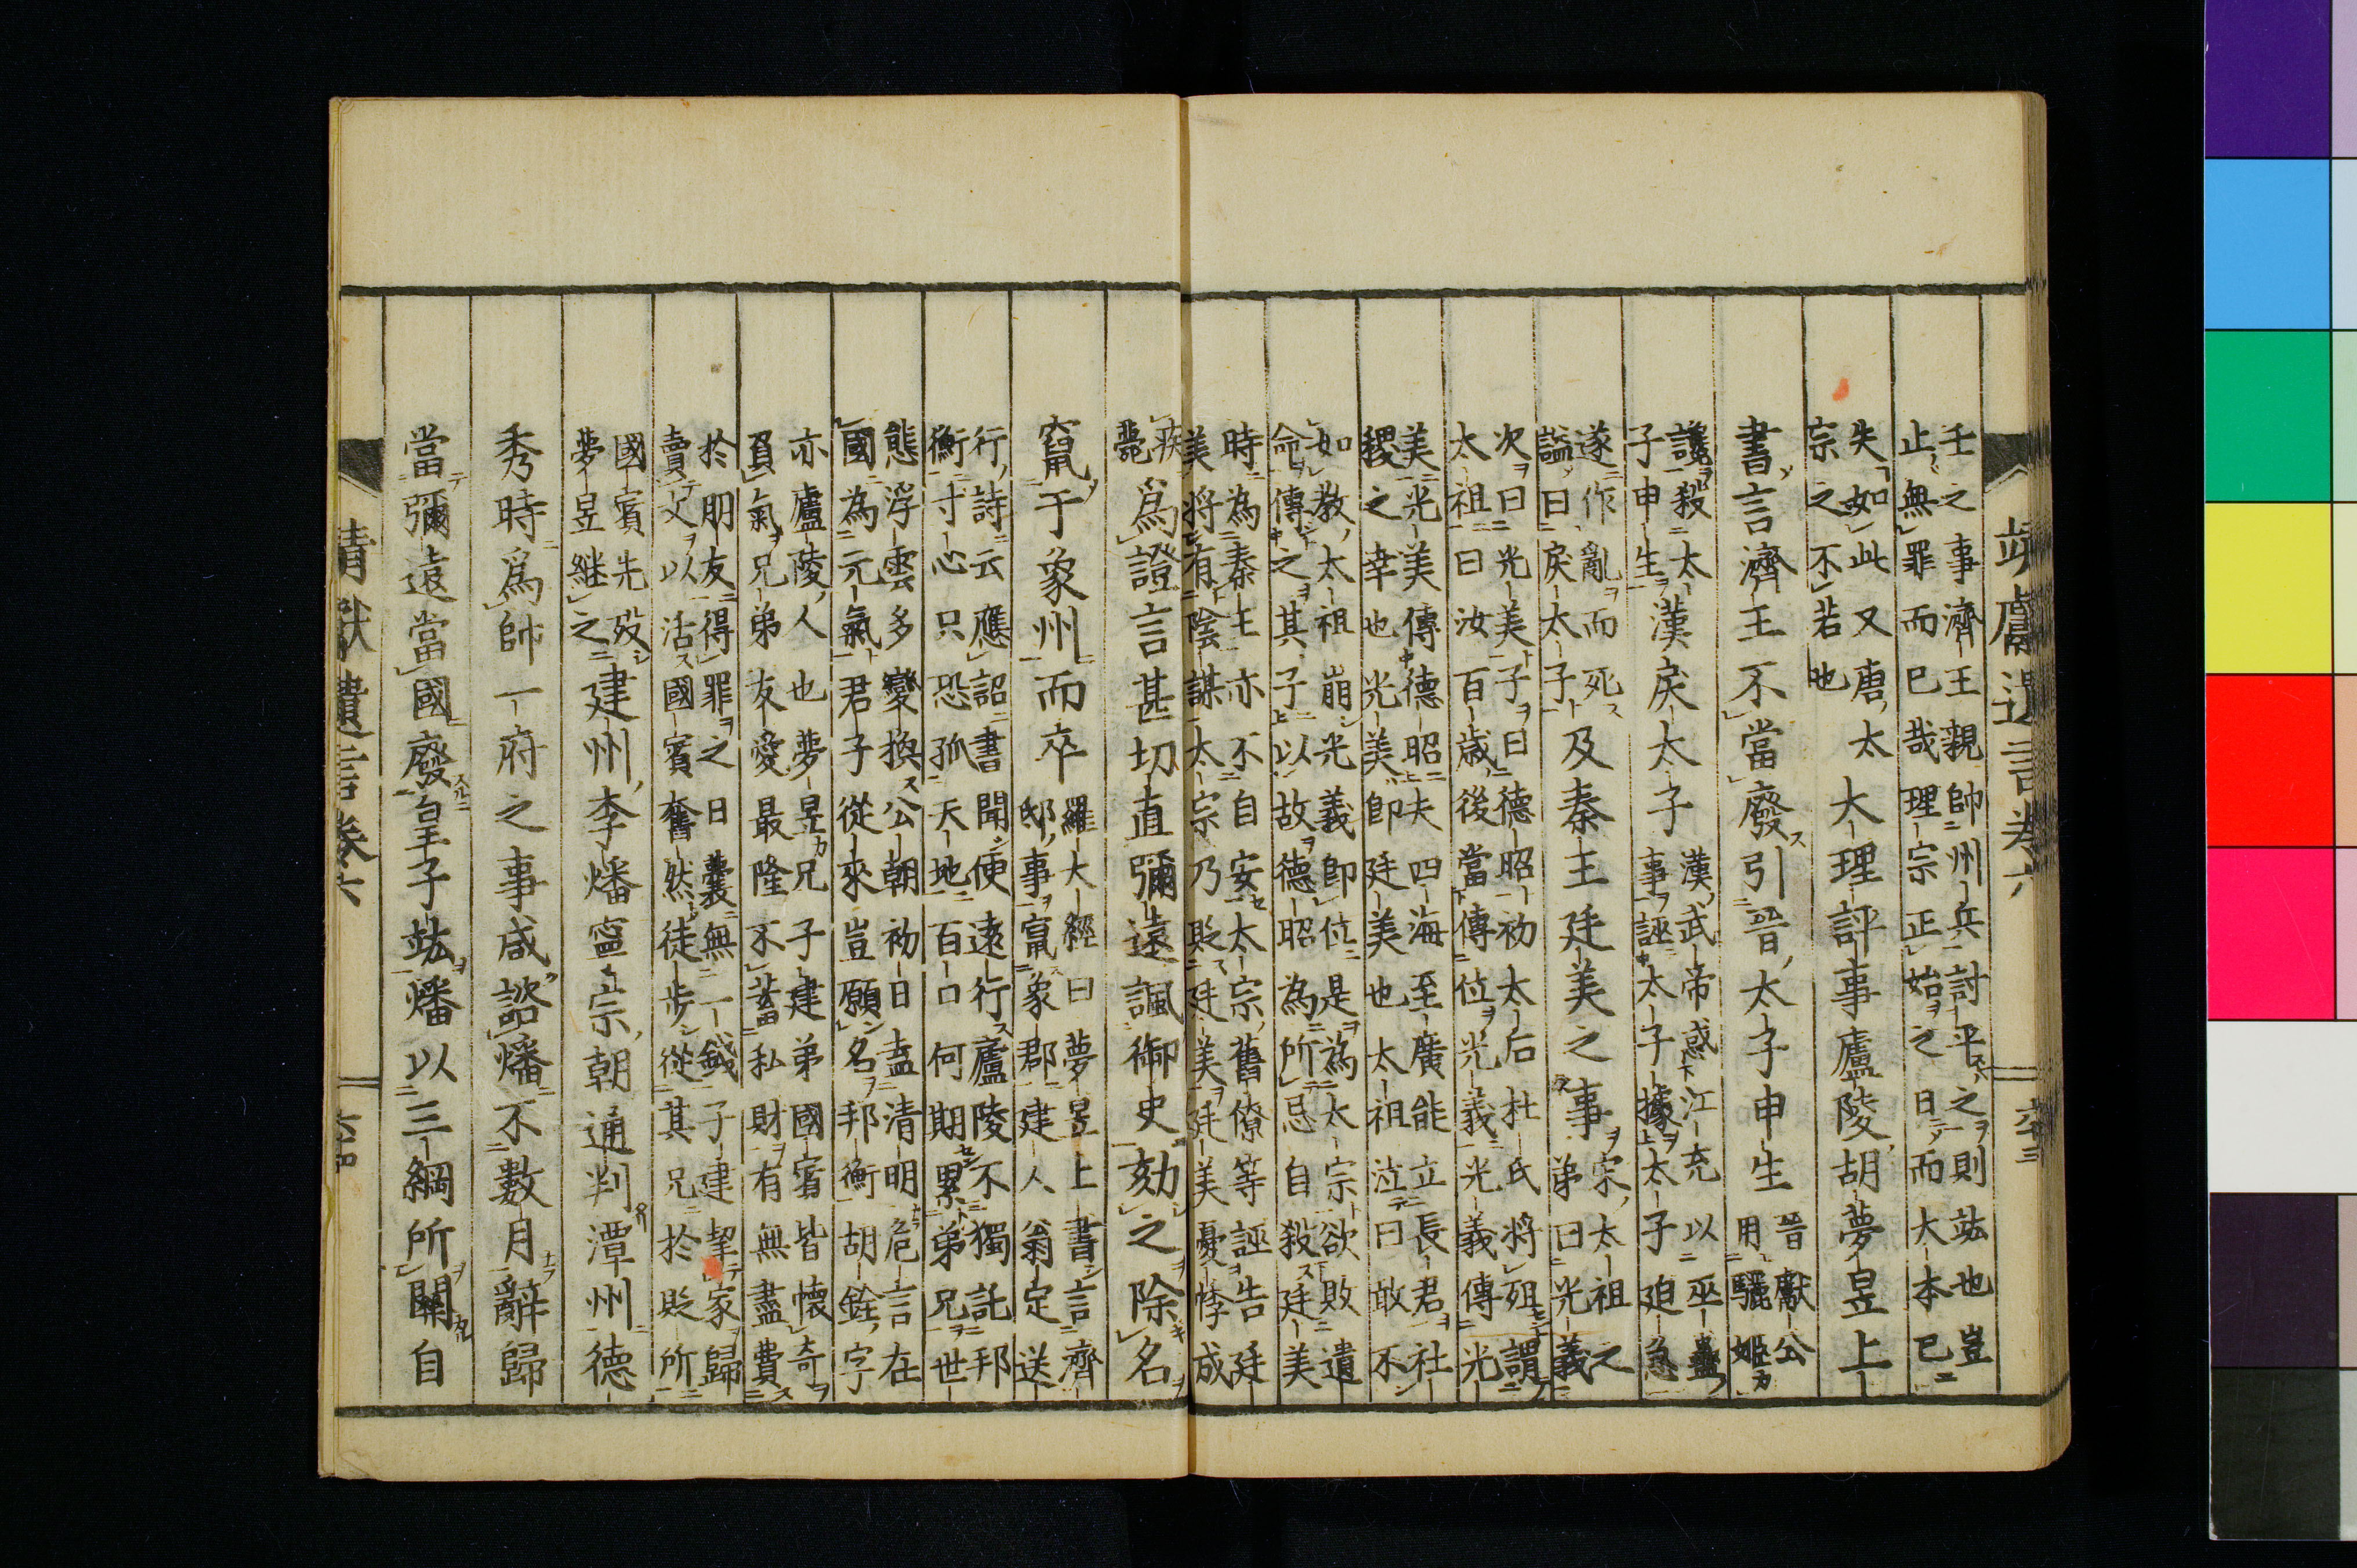 靖獻遺言卷六
六十三
壬之事濟王親帥州兵討平之則竑也豈
止無罪而已哉理宗正始之日而大本已
失如此又唐太
宗之不若也
大理評事盧陵胡夢昱上
書言濟王不當廢引晉太子申生
晉獻公
用驪姬
讒殺太
子申生
漢戾太子
漢武帝惑江充以巫蠱
事誣太子據太子迫急
遂作亂而死
諡曰戾太子
及秦王廷美之事
宗太祖之
弟曰光義
次曰光美子曰德昭初太后杜氏將殂謂
太祖曰汝百歲後當傳位光義光義傳光
美光美傳德昭夫四海至廣能立長君社
稷之幸也光美卽廷美也太祖泣曰敢不
如教太祖崩光義卽位是為太宗欲敗遺
命傳之其子以故德昭為所忌自殺廷美
時為秦王亦不自安太宗舊僚等誣告廷
美將有陰謀太宗乃貶廷美廷美憂悸成
疾
薨
爲證言甚切直彌遠諷御史劾之除名
竄于象州而卒
羅大經曰夢昱上書言齊
邸事竄象郡建人翁定送
行詩云應詔書聞便遠行廬陵不獨託邦
衡寸心只恐孤天地百口何期累弟兄世
態浮雲多變換公朝初日盡清明危言在
國為元氣君子從來豈願名邦衡胡銓字
亦盧陵人也夢昱兄子建弟國賓皆懷奇
負氣兄弟友愛最隆不蓄私財有無盡費
於朋友得罪之日囊無一錢子建挈家歸
賣文以活國賓奮然徒步從其兄於貶所
國賓先歿
夢昱継之
建州李燔寧宗朝通判潭州德
秀時爲帥一府之事咸諮燔不數月辭歸
當彌遠當國廢皇子竑燔以三綱所關自
靖獻遺言卷六